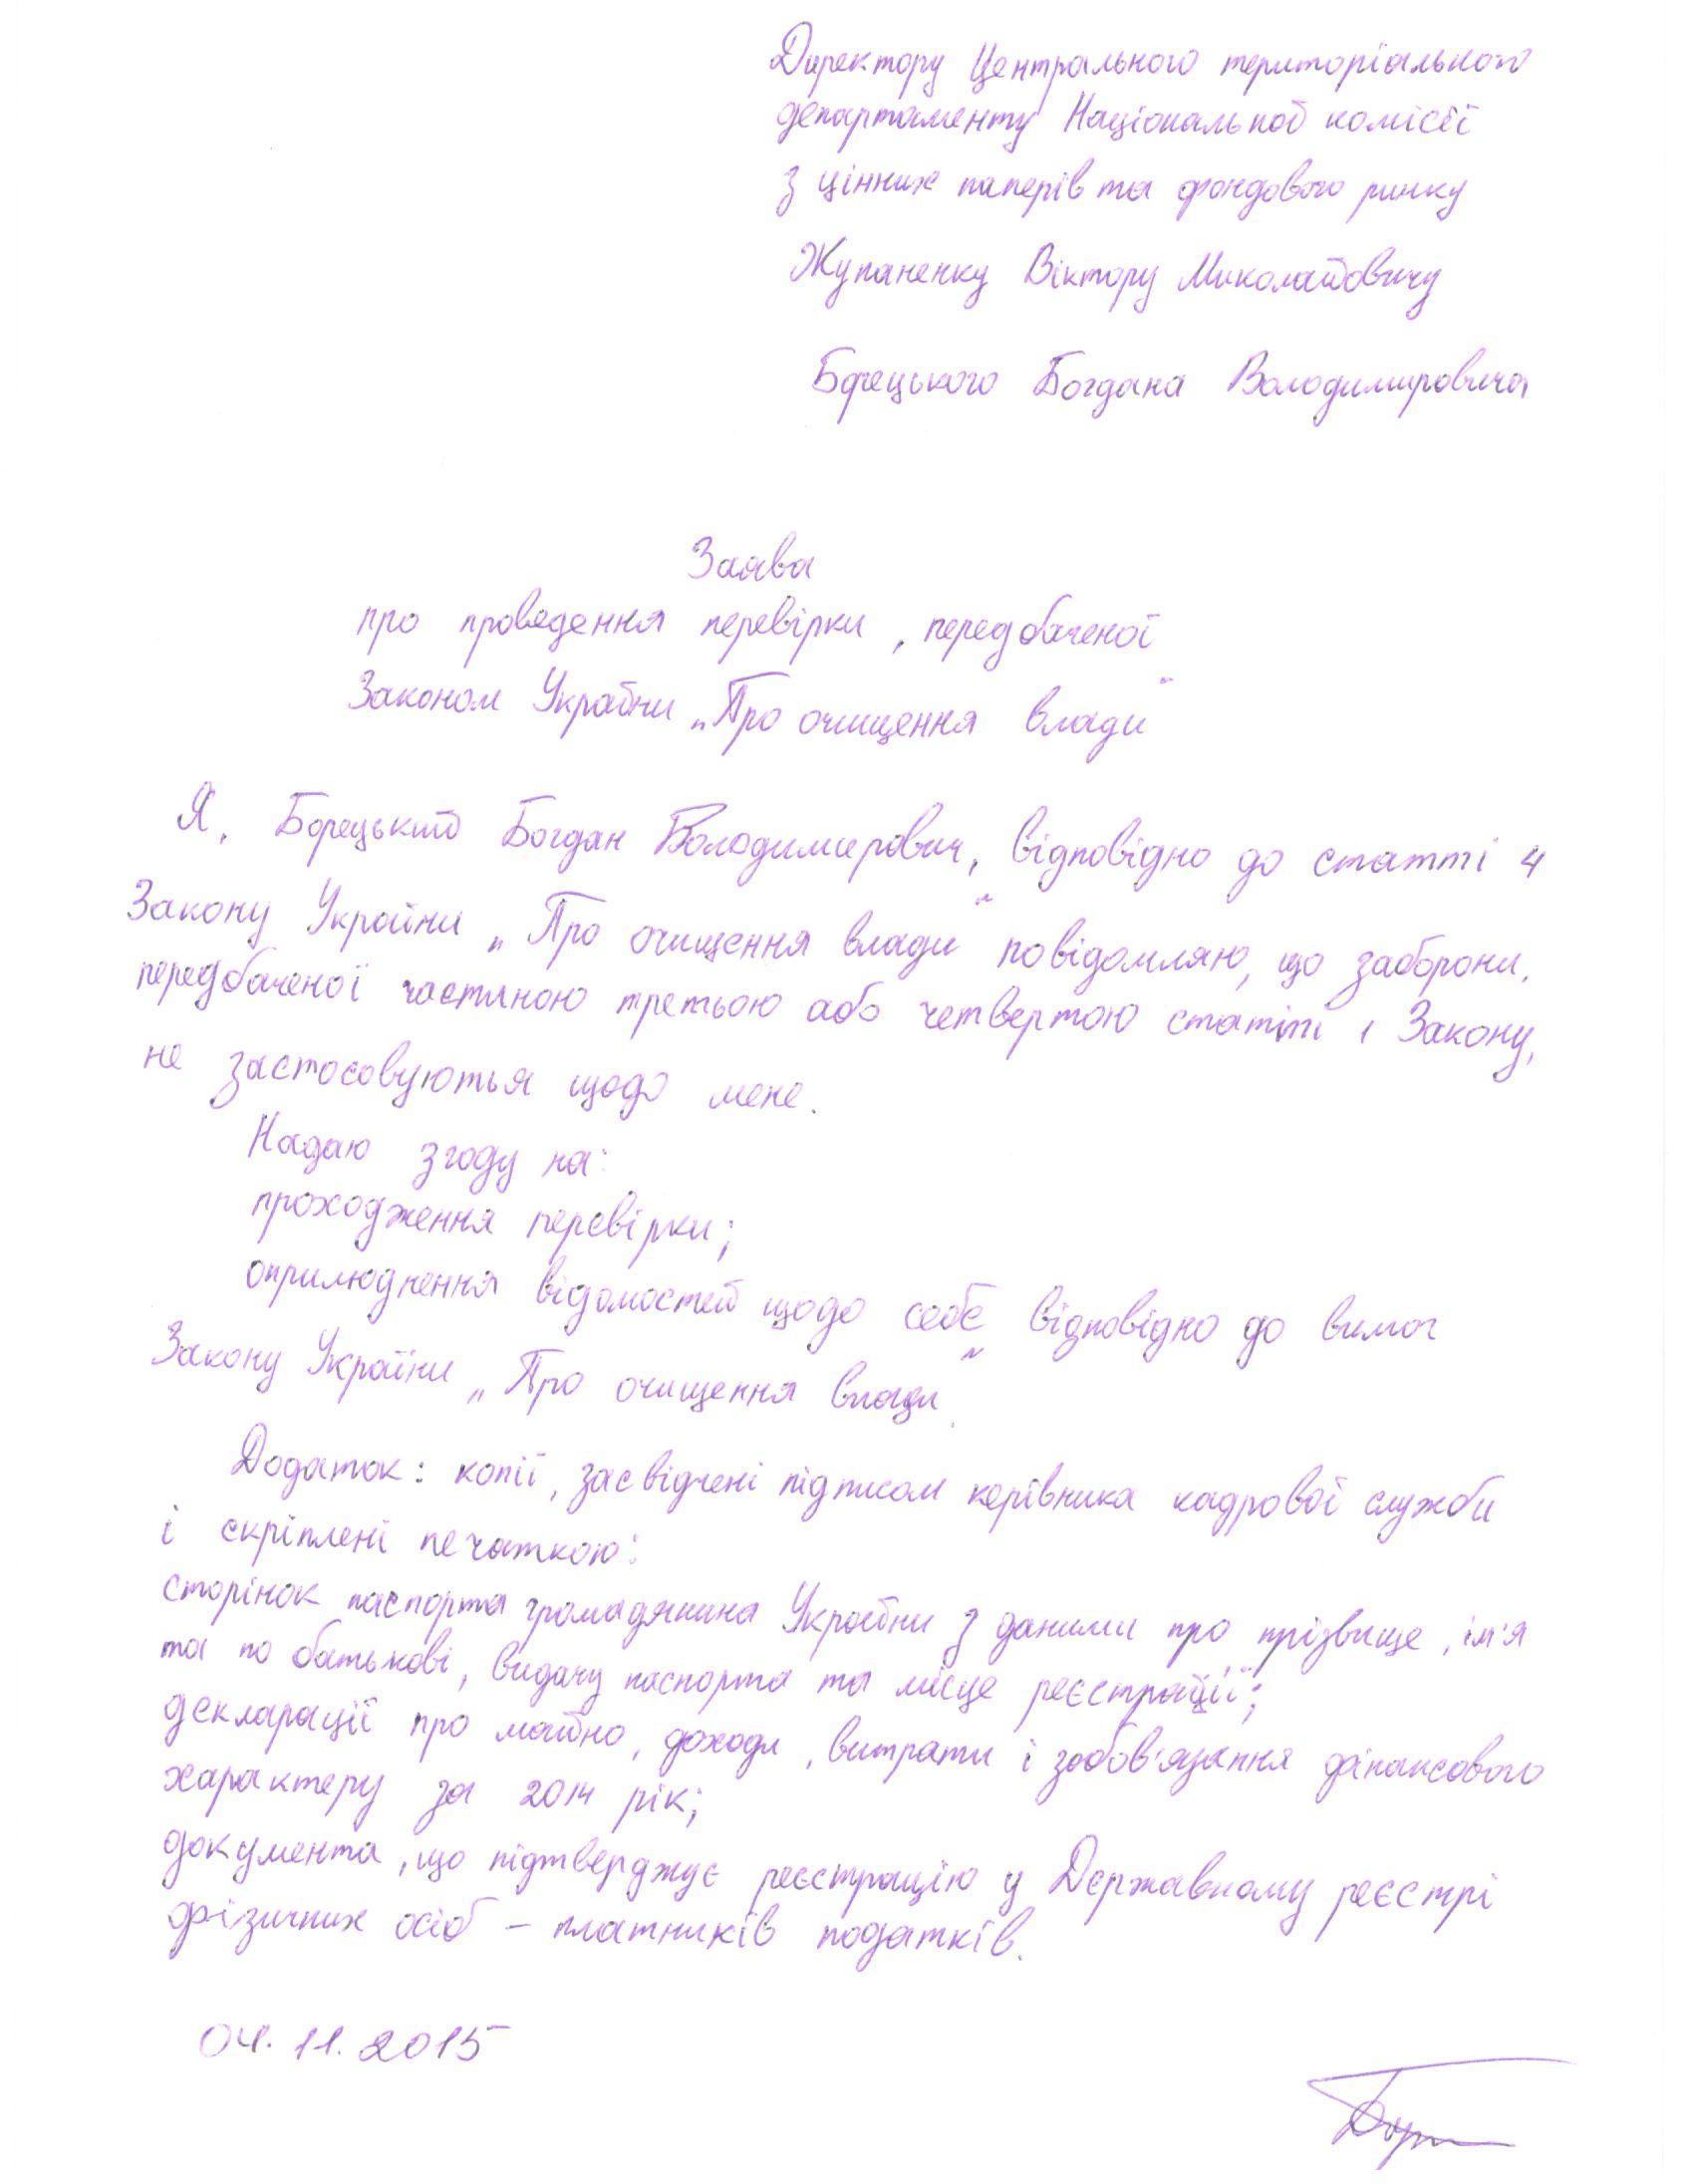 Директору Центрального територіального
департаменту Національної комісії
з цінних паперів та фондового ринку
Жупаненку Віктору Миколайовичу
Борецького Богдана Володимировича
Заява
про проведення перевірки, передбаченої
Законом України „Про очищення влади"
Я, Борецький Богдан Володимирович, відповідно до статті 4
Закону України „Про очищення влади" повідомляю, що заборони,
передбаченої частиною третьою або четвертою статті 1 Закону,
не застосовуються щодо мене.
Надаю згоду на:
проходження перевірки;
оприлюднення відомостей щодо себе відповідно до вимог
Закону України „Про очищення влади".
Додаток: копії, засвідчені підписом керівника кадрової служби
і скріплені печаткою:
сторінок паспорта громадянина України з даними про прізвище, ім'я
та по батькові, видачу паспорта та місце реєстрації;
декларації про майно, доходи, витрати і зобов'язання фінансового
характеру за 2014 рік;
документа, що підтверджує реєстрацію у Державному реєстрі
фізичних осіб – платників податків.
04.11.2015